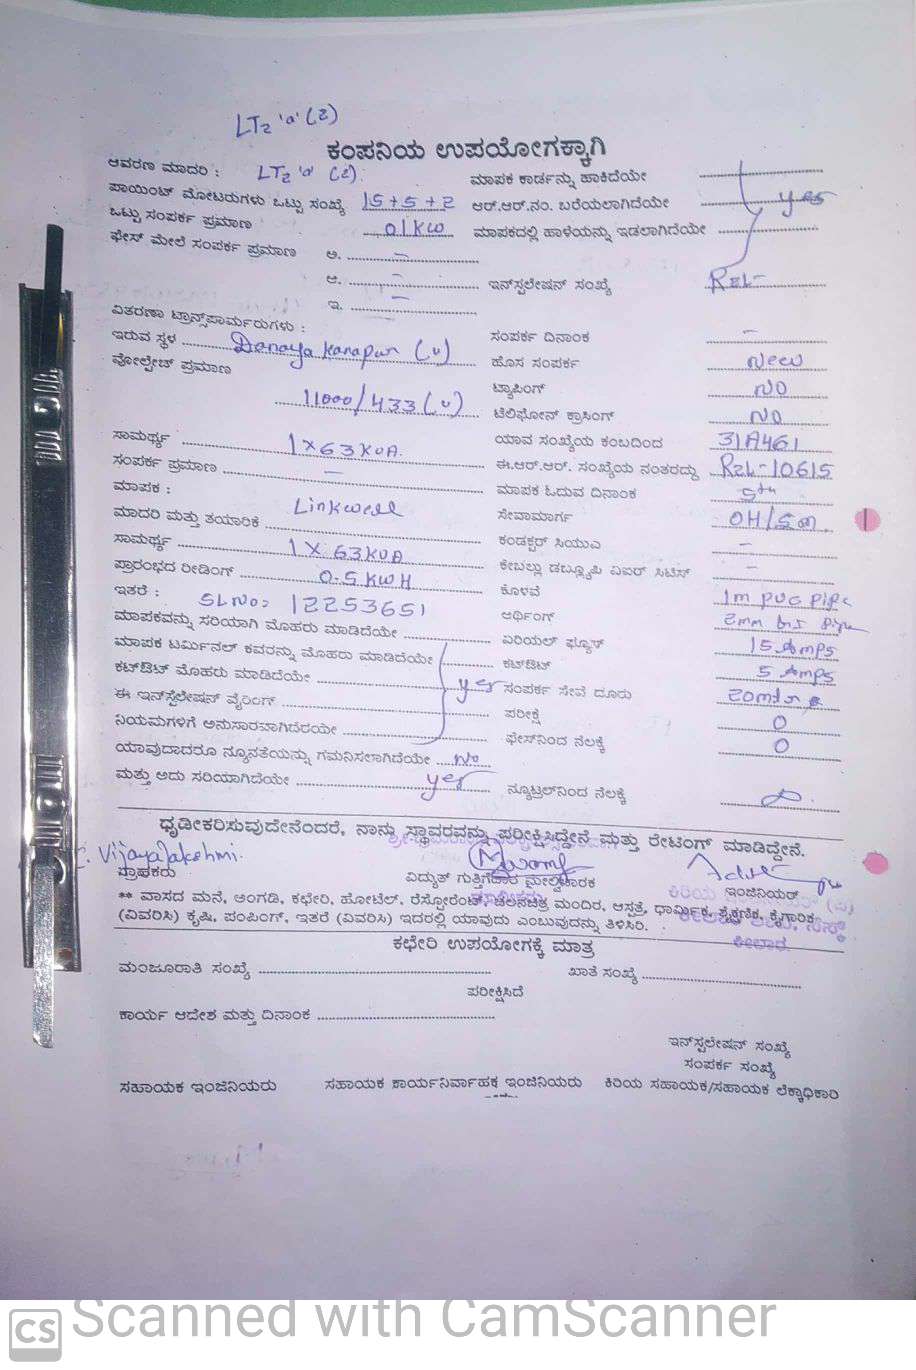 LT2 'a' (2)
ಕಂಪನಿಯ ಉಪಯೋಗಕ್ಕಾಗಿ
ಆವರಣ ಮಾದರಿ : LT2 'a' (2). ಮಾಪಕ ಕಾರ್ಡನ್ನು ಹಾಕಿದೆಯೇ
ಪಾಯಿಂಟ್ ಮೋಟರುಗಳು ಒಟ್ಟು ಸಂಖ್ಯೆ 15+5+2 ಆರ್.ಆರ್.ನಂ. ಬರೆಯಲಾಗಿದೆಯೇ yes
ಒಟ್ಟು ಸಂಪರ್ಕ ಪ್ರಮಾಣ 01KW ಮಾಪಕದಲ್ಲಿ ಹಾಳೆಯನ್ನು ಇಡಲಾಗಿದೆಯೇ
ಫೇಸ್ ಮೇಲೆ ಸಂಪರ್ಕ ಪ್ರಮಾಣ ಅ. –
ಆ. – ಇನ್‌ಸ್ಟಲೇಷನ್ ಸಂಖ್ಯೆ RZL-
ಇ. –
ವಿತರಣಾ ಟ್ರಾನ್ಸ್‌ಪಾರ್ಮರುಗಳು :
ಇರುವ ಸ್ಥಳ Danaya kanapur (u) ಸಂಪರ್ಕ ದಿನಾಂಕ –
ವೋಲ್ಟೇಜ್ ಪ್ರಮಾಣ ಹೊಸ ಸಂಪರ್ಕ New
ಟ್ಯಾಪಿಂಗ್ NO
11000/433 (u) ಟೆಲಿಫೋನ್ ಕ್ರಾಸಿಂಗ್ NO
ಸಾಮರ್ಥ್ಯ 1X63KVA. ಯಾವ ಸಂಖ್ಯೆಯ ಕಂಬದಿಂದ 31A461
ಸಂಪರ್ಕ ಪ್ರಮಾಣ – ಈ.ಆರ್.ಆರ್. ಸಂಖ್ಯೆಯ ನಂತರದ್ದು RZL-10615
ಮಾಪಕ : ಮಾಪಕ ಓದುವ ದಿನಾಂಕ 5th
ಮಾದರಿ ಮತ್ತು ತಯಾರಿಕೆ Linkwell ಸೇವಾಮಾರ್ಗ
ಸಾಮರ್ಥ್ಯ 1X63KVA ಕಂಡಕ್ಟರ್ ಸಿಯುವಿ –
ಪ್ರಾರಂಭದ ರೀಡಿಂಗ್ 0.5KWH ಕೇಬಲ್ಲು ಡಬ್ಲ್ಯೂಪಿ ವಿಐರ್ ಸಿಟಿಸ್ –
ಇತರೆ : SLNO: 12253651 ಕೊಳವೆ 1m pvc pipe
ಮಾಪಕವನ್ನು ಸರಿಯಾಗಿ ಮೊಹರು ಮಾಡಿದೆಯೇ ಅರ್ಥಿಂಗ್ 2mm
ಮಾಪಕ ಟರ್ಮಿನಲ್ ಕವರನ್ನು ಮೊಹರು ಮಾಡಿದೆಯೇ ಏರಿಯಲ್ ಫ್ಯೂಸ್ 15 Amps
ಕಟ್‌ಔಟ್ ಮೊಹರು ಮಾಡಿದೆಯೇ yes ಕಟ್‌ಔಟ್ 5 Amps
ಈ ಇನ್‌ಸ್ಟೆಲೇಷನ್ ವೈರಿಂಗ್ ಸಂಪರ್ಕ ಸೇವೆ ದೂರು 20mtrs
ನಿಯಮಗಳಿಗೆ ಅನುಸಾರವಾಗಿದೆರಯೇ ಪರೀಕ್ಷೆ 0
ಯಾವುದಾದರೂ ನ್ಯೂನತೆಯನ್ನು ಗಮನಿಸಲಾಗಿದೆಯೇ No ಫೇಸ್‌ನಿಂದ ನೆಲಕ್ಕೆ 0
ಮತ್ತು ಅದು ಸರಿಯಾಗಿದೆಯೇ yes ನ್ಯೂಟ್ರಲ್‌ನಿಂದ ನೆಲಕ್ಕೆ ∞.
ಧೃಡೀಕರಿಸುವುದೇನೆಂದರೆ, ನಾನು ಸ್ಥಾವರವನ್ನು ಪರೀಕ್ಷಿಸಿದ್ದೇನೆ ಮತ್ತು ರೇಟಿಂಗ್ ಮಾಡಿದ್ದೇನೆ.
C. Vijayalakshmi.
ಗ್ರಾಹಕರು ವಿದ್ಯುತ್ ಗುತ್ತಿಗೆದಾರ ಮೇಲ್ವಿಚಾರಕ ಇಂಜಿನಿಯರ್
** ವಾಸದ ಮನೆ, ಅಂಗಡಿ, ಕಛೇರಿ, ಹೋಟೆಲ್, ರೆಸ್ಟೋರೆಂಟ್, ಚಲನಚಿತ್ರ ಮಂದಿರ, ಆಸ್ಪತ್ರೆ, ಧಾರ್ಮಿಕ, ಶೈಕ್ಷಣಿಕ, ಕೈಗಾರಿಕ
(ವಿವರಿಸಿ) ಕೃಷಿ, ಪಂಪಿಂಗ್, ಇತರೆ (ವಿವರಿಸಿ) ಇದರಲ್ಲಿ ಯಾವುದು ಎಂಬುವುದನ್ನು ತಿಳಿಸಿರಿ.
ಕಛೇರಿ ಉಪಯೋಗಕ್ಕೆ ಮಾತ್ರ
ಮಂಜೂರಾತಿ ಸಂಖ್ಯೆ ಖಾತೆ ಸಂಖ್ಯೆ
ಪರೀಕ್ಷಿಸಿದೆ
ಕಾರ್ಯ ಆದೇಶ ಮತ್ತು ದಿನಾಂಕ
ಇನ್‌ಸ್ಟಲೇಷನ್ ಸಂಖ್ಯೆ
ಸಂಪರ್ಕ ಸಂಖ್ಯೆ
ಸಹಾಯಕ ಇಂಜಿನಿಯರು ಸಹಾಯಕ ಕಾರ್ಯನಿರ್ವಾಹಕ ಇಂಜಿನಿಯರು ಕಿರಿಯ ಸಹಾಯಕ/ಸಹಾಯಕ ಲೆಕ್ಕಾಧಿಕಾರಿ
CS Scanned with CamScanner